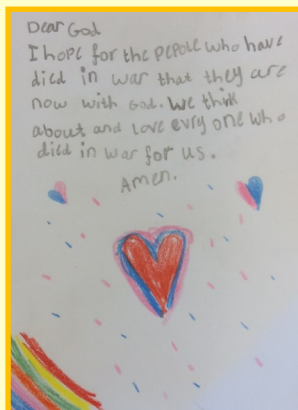 Dear God
I hope for the pepole who have
died in war that they are
now with God. We think
about and love evry one who
died in war for us.
Amen.